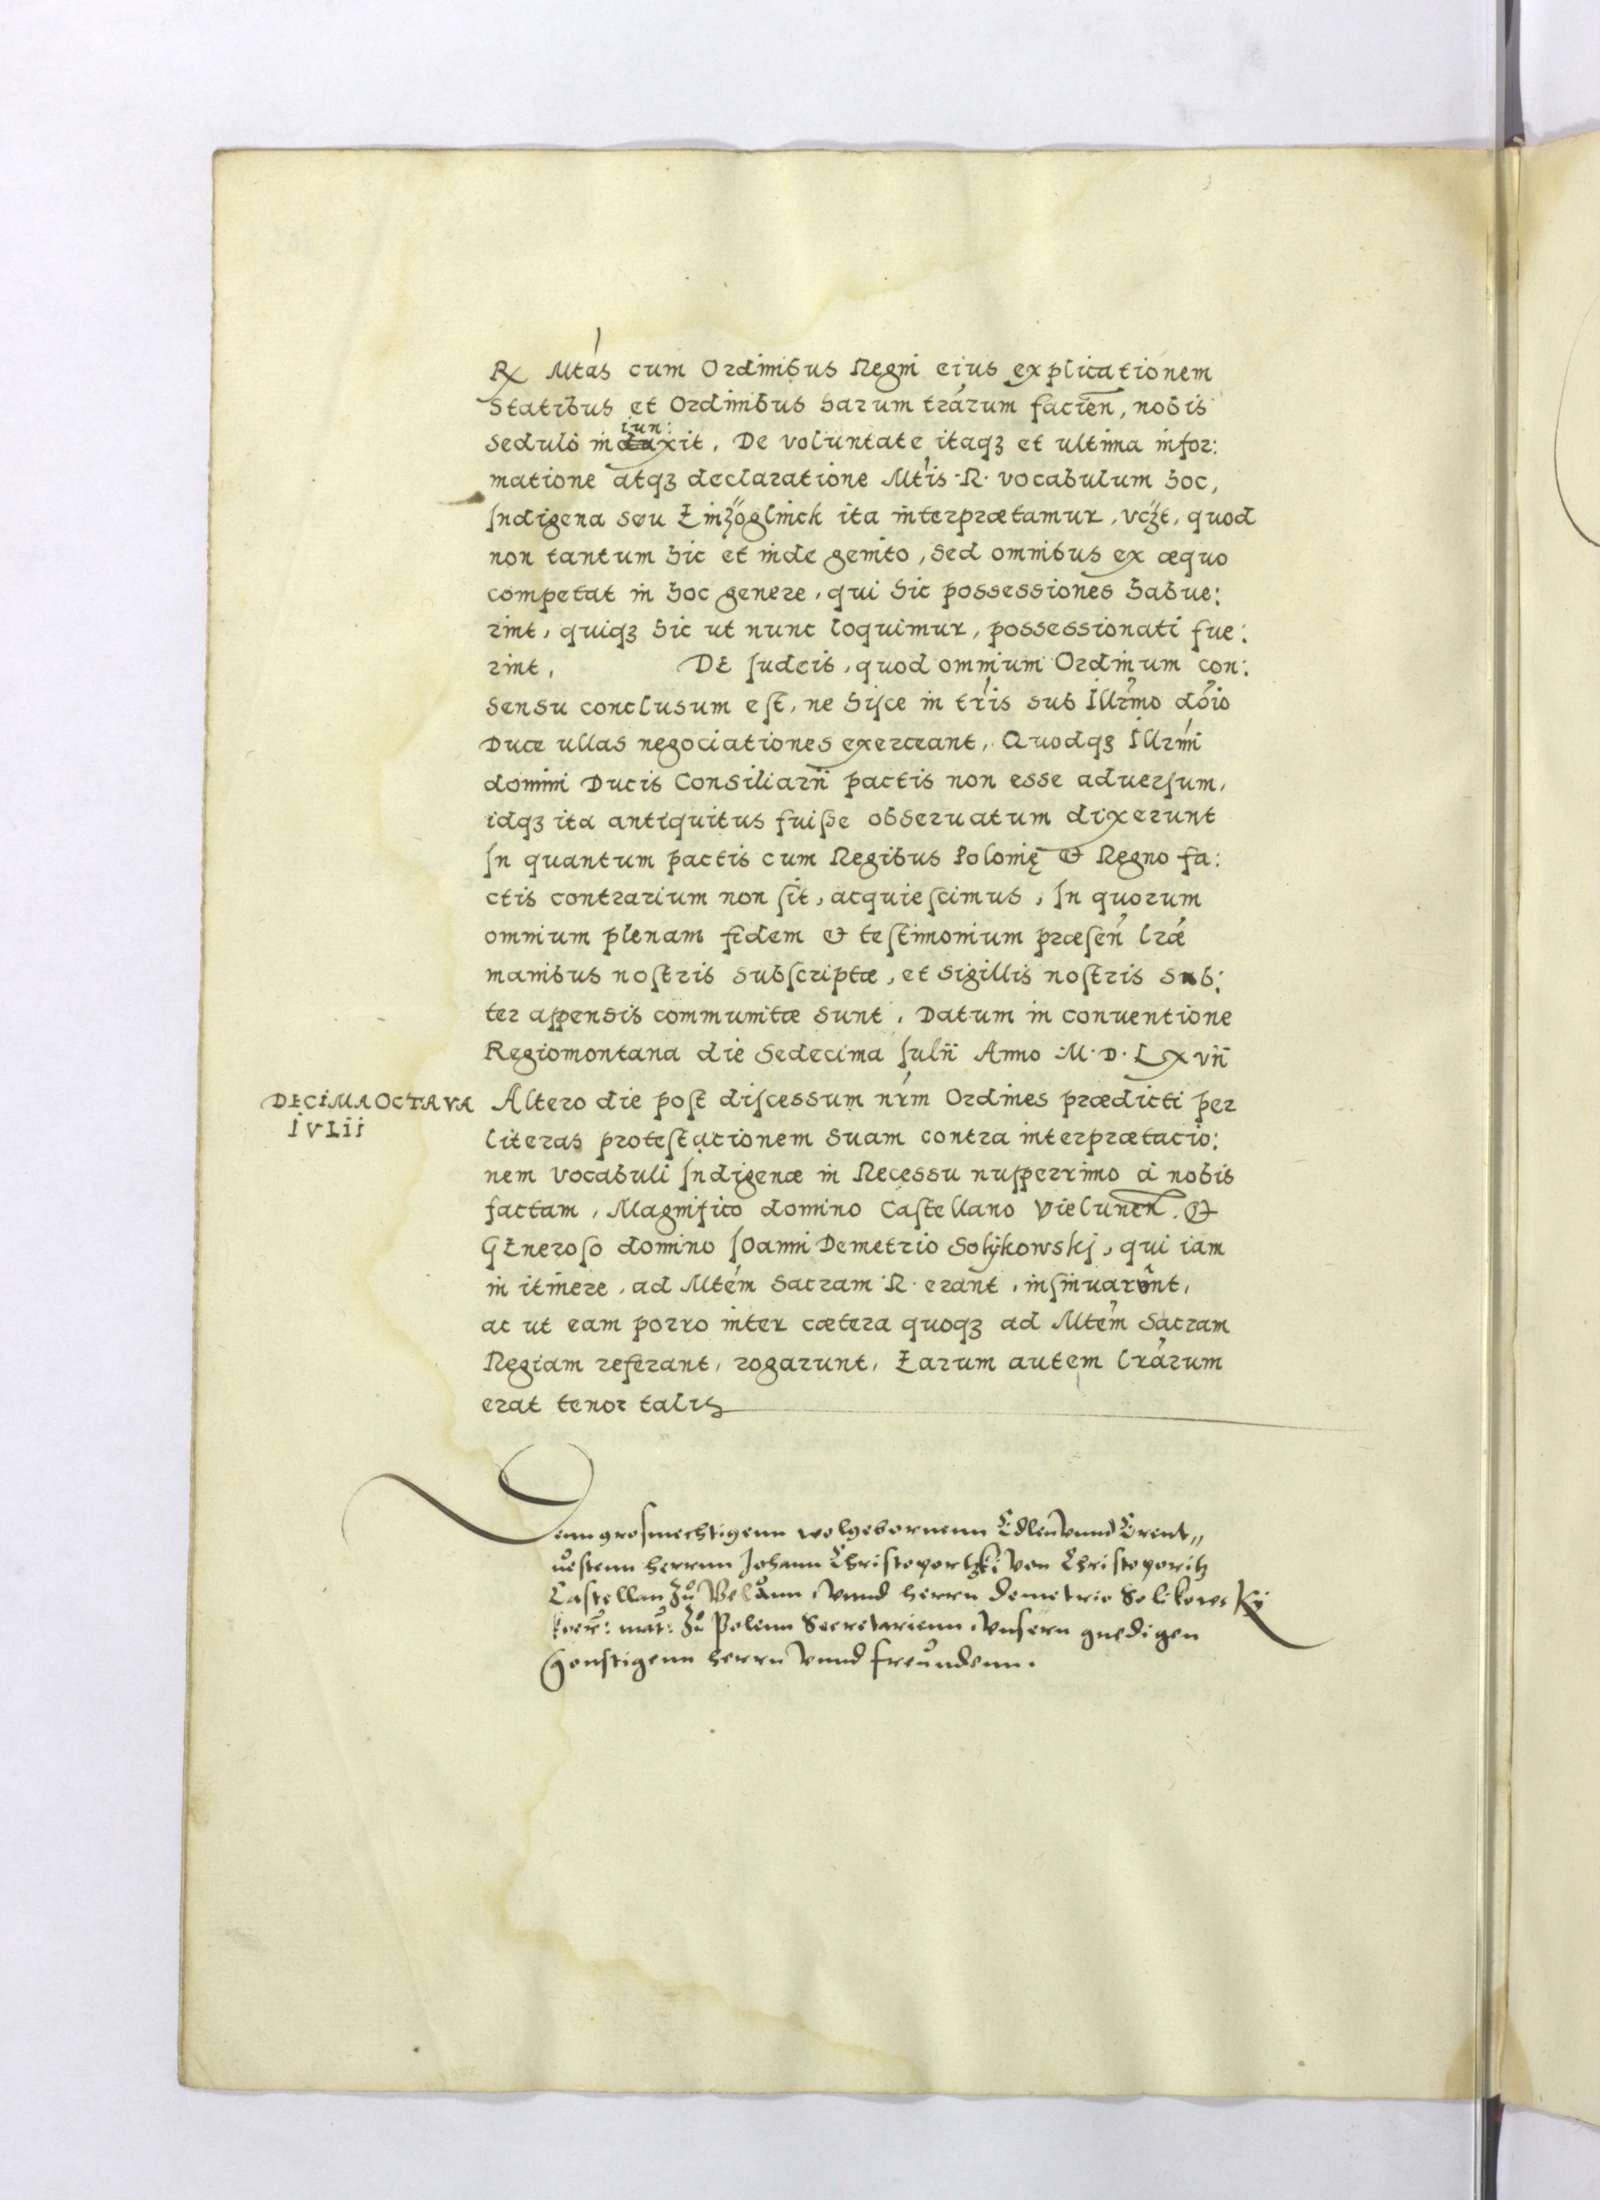 Rx Mtás cum Ordinibus Regni eius explicationem
Statibus et Ordinibus harum trárum facien, nobis
sedulò in iun: xit, De voluntate itaqʒ et ultima infor:
matione atqʒ declaratione Mtís ·R· vocabulum hoc,
Indigena seu Einzöglinck ita interprætamur, vcʒt, quod
non tantum hic et inde genito, sed omnibus ex æquo
competat in hoc genere, qui hic possessiones habue:
rint, quiqʒ hic ut nunc loquimur, possessionati fue:
rint, DE Iudeis, quod omnium Ordinum con:
sensu conclusum est, ne hisce in trís sub Illrmo dóio
Duce ullas negociationes exerceant, Quodqʒ Illrmí
domini Ducis Consiliarii pactis non esse aduersum,
idqʒ ita antiquitus fuisse obseruatum dixerunt
In quantum pactis cum Regibus Polonię & Regno fa:
ctis contrarium non sit, acquiescimus, In quorum
omnium plenam fidem & testimonium præsen lræ
manibus nostris subscriptæ, et sigillis nostris sub:
ter appensis communitæ sunt, Datum in conuentione
Regiomontana die Sedecima Iulii Anno M·D·Lxvii
DECIMA OCTAVA
IVLii
Altero die post discessum nrm Ordines prædicti per
literas protestationem suam contra interprætacio:
nem vocabuli Indigenæ in Recessu nupperrimo à nobis
factam, Magnifico domino Castellano Vielunen. &
GEneroso domino Ioanni Demetrio Solÿkowskj, qui iam
in itinere, ad Mtém Sacram R· erant, insinuarunt,
ac ut eam porro inter cætera quoqʒ ad Mtém Sacram
Regiam referant, rogarunt, Earum autem lrárum
erat tenor talis
Denn grosmechtigenn wolgebornenn Edlen vnnd Erent„
uestenn herrnn Johann Christoportzki von Christoporitz
Castellan zu Velunn, vnnd herrn Demetrio Solikowskÿ
koen: mat: zu Polenn Secretarienn, vnsern gnedigen
gonstigenn herrn vnnd freundenn.